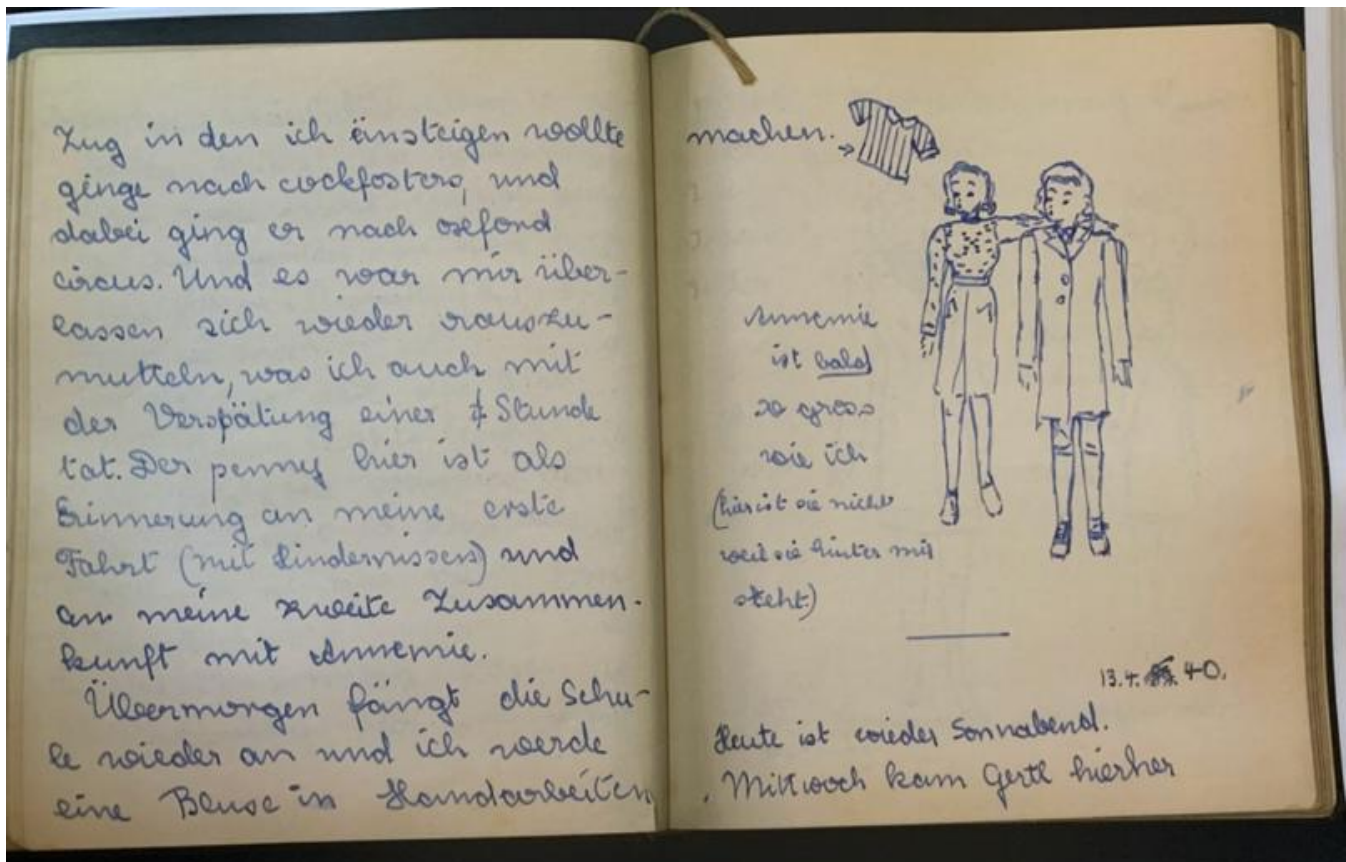 Zug in den ich einsteigen wollte
ginge nach cockfosters, und
dabei ging er nach oxford
circus. Und es war mir über-
lassen sich wieder rauszu-
mutteln, was ich auch mit
der Verspätung einer Stunde
tat. Der penny hier ist als
Erinnerung an meine erste
Fahrt (mit Hindernissen) und
an meine zweite Zusammen-
kunft mit Annemie.
Übermorgen fängt die Schu-
le wieder an und ich werde
eine Bluse in Handarbeiten
machen.
Annemie
ist bald
so gross
wie ich
(hier ist sie nicht
weil sie hinter mir
steht)
13.4. 40.
Heute ist wieder Sonnabend.
Mittwoch kam Gertl hierher